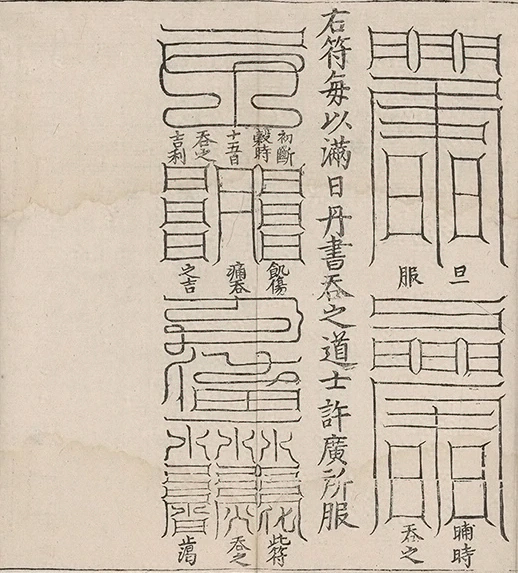 旦
服
晡時
吞之
右符每以滿日丹書吞之道士許廣所服
初斷
穀時
十五日
吞之
吉利
飢傷
痛吞
之吉
此符
吞之
止渴